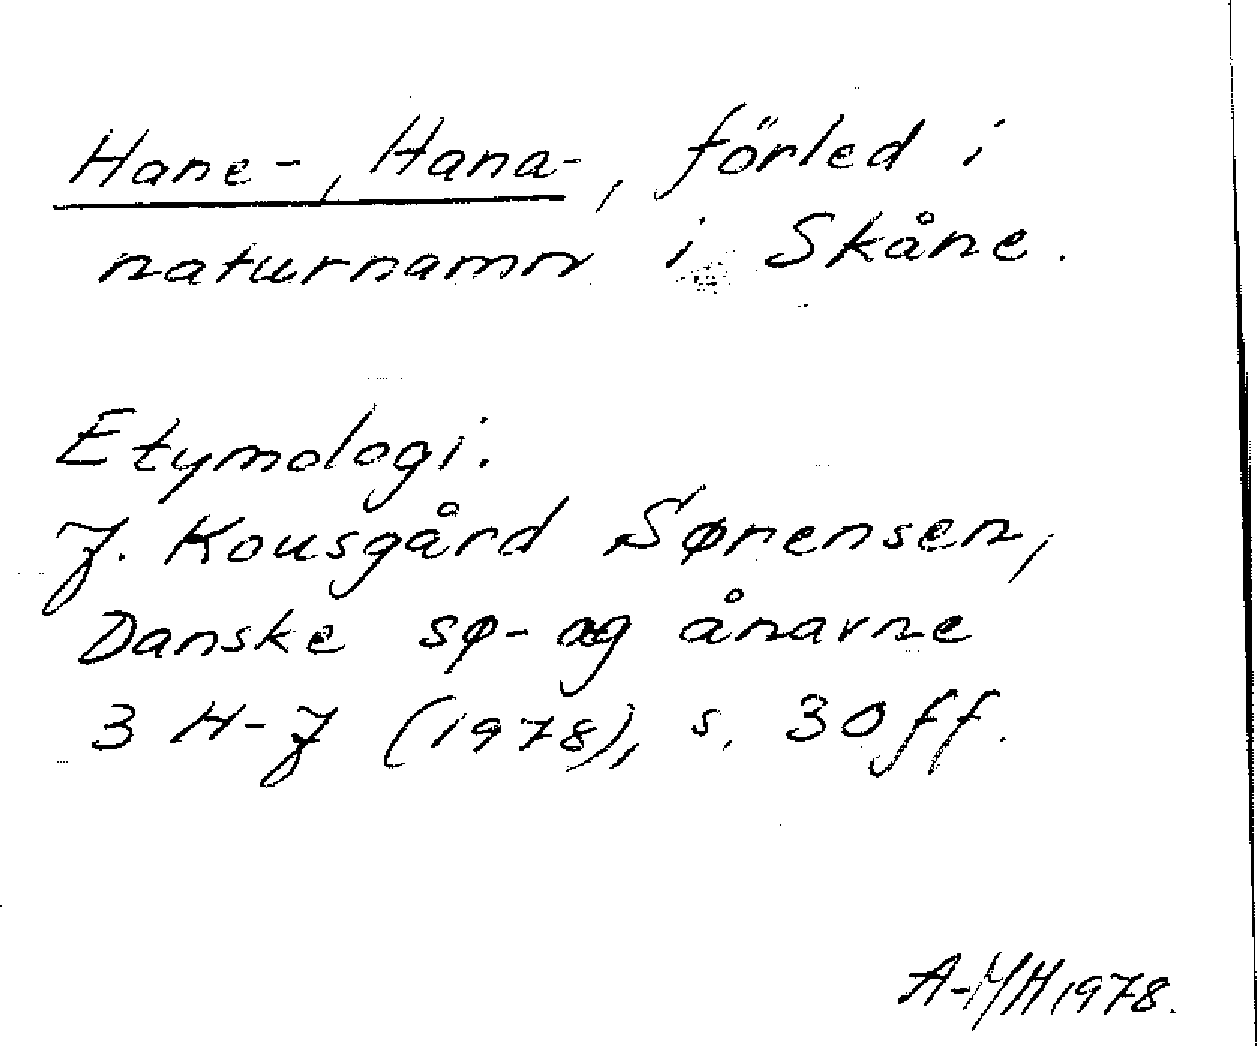 Hane-, Hana-, förled i
naturnamn i Skåne.
Etymologi.
J. Kousgård Sørensen,
Danske sø- og ånavne
3 H-J (1978), s. 30 ff.
A-MH 1978.